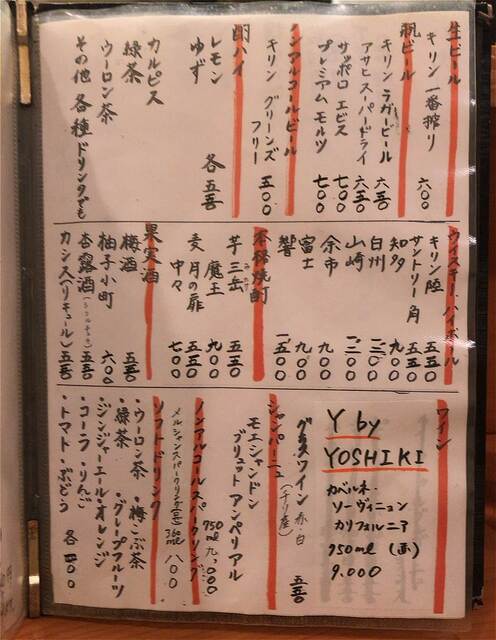 生ビール
キリン 一番搾り 六〇〇
瓶ビール
キリン ラガービール 六五〇
アサヒスーパードライ 六五〇
サッポロ エビス 七〇〇
プレミアムモルツ 七〇〇
ノンアルコールビール
キリン グリーンズフリー 五〇〇
酎ハイ
レモン
ゆず
各 五五〇
カルピス
緑茶
ウーロン茶
その他 各種ドリンクでも
ウイスキー・ハイボール
キリン陸 五五〇
サントリー角 五五〇
知多 九〇〇
白州
山崎
余市 九〇〇
富士 九〇〇
響 一五〇〇
本格焼酎
芋 三岳 五五〇
魔王 九〇〇
麦 月の扉 五五〇
中々 七〇〇
果実酒
梅酒 五五〇
柚子小町 六〇〇
杏露酒(シンルチュウ) 五五〇
カシス(リキュール) 五五〇
ワイン
Y by
YOSHIKI
カベルネ・
ソーヴィニョン
カリフォルニア
750ml (赤)
9.000
グラスワイン 赤・白
(チリ産) 五五〇
シャンパーニュ
モエシャンドン
ブリュット アンペリアル
750ml 九,〇〇〇
ノンアルコールスパークリング
メルシャンスパークリング(白) 360ml 八〇〇
ソフトドリンク
・ウーロン茶 ・梅こぶ茶
・緑茶 ・グレープフルーツ
・ジンジャーエール・オレンジ
・コーラ ・りんご
・トマト ・ぶどう
各 四〇〇